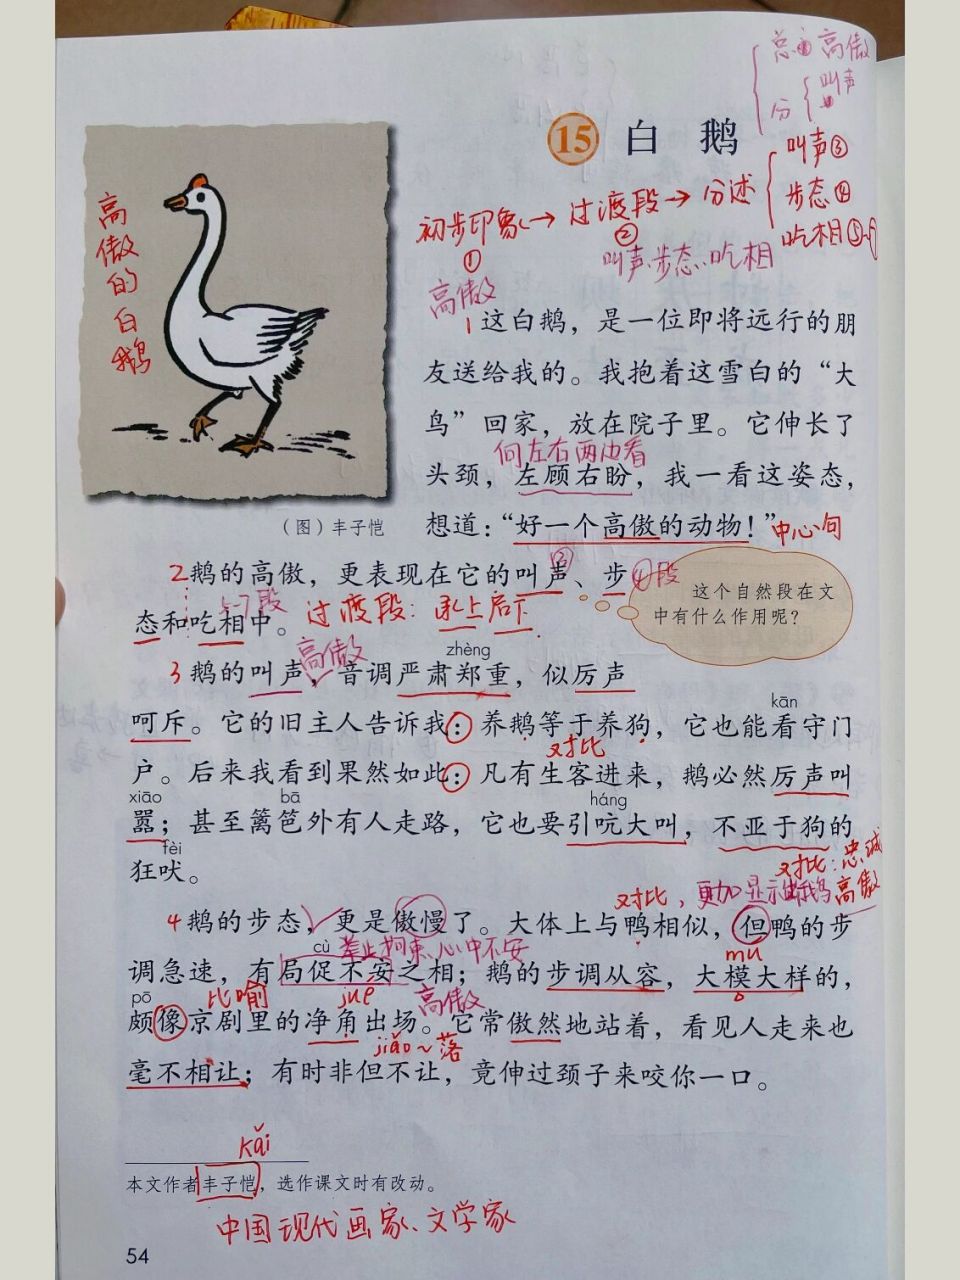 总 高傲
分 叫声
15 白 鹅
叫声③
初步印象→过渡段→分述
步态④
① ②
吃相⑤~7
叫声、步态、吃相
高傲的白鹅
高傲
1这白鹅，是一位即将远行的朋
友送给我的。我抱着这雪白的“大
鸟”回家，放在院子里。它伸长了
向左右两边看
头颈，左顾右盼，我一看这姿态，
（图）丰子恺
想道：“好一个高傲的动物！”中心句
③
2鹅的高傲，更表现在它的叫声、步④段
这个自然段在文
中有什么作用呢？
5-7段
态和吃相中。过渡段：承上启下
高傲
zhèng
3鹅的叫声，音调严肃郑重，似厉声
kān
呵斥。它的旧主人告诉我：养鹅等于养狗，它也能看守门
对比
户。后来我看到果然如此：凡有生客进来，鹅必然厉声叫
xiāo bā háng
嚣；甚至篱笆外有人走路，它也要引吭大叫，不亚于狗的
fèi
狂吠。
对比：忠诚
对比，更加显示出鹅高傲
4鹅的步态，更是傲慢了。大体上与鸭相似，但鸭的步
cù 举止拘束、心中不安
mú
调急速，有局促不安之相；鹅的步调从容，大模大样的，
pō 比喻 jué 高傲
颇像京剧里的净角出场。它常傲然地站着，看见人走来也
jiǎo~落
毫不相让；有时非但不让，竟伸过颈子来咬你一口。
kǎi
本文作者丰子恺，选作课文时有改动。
中国现代画家、文学家
54